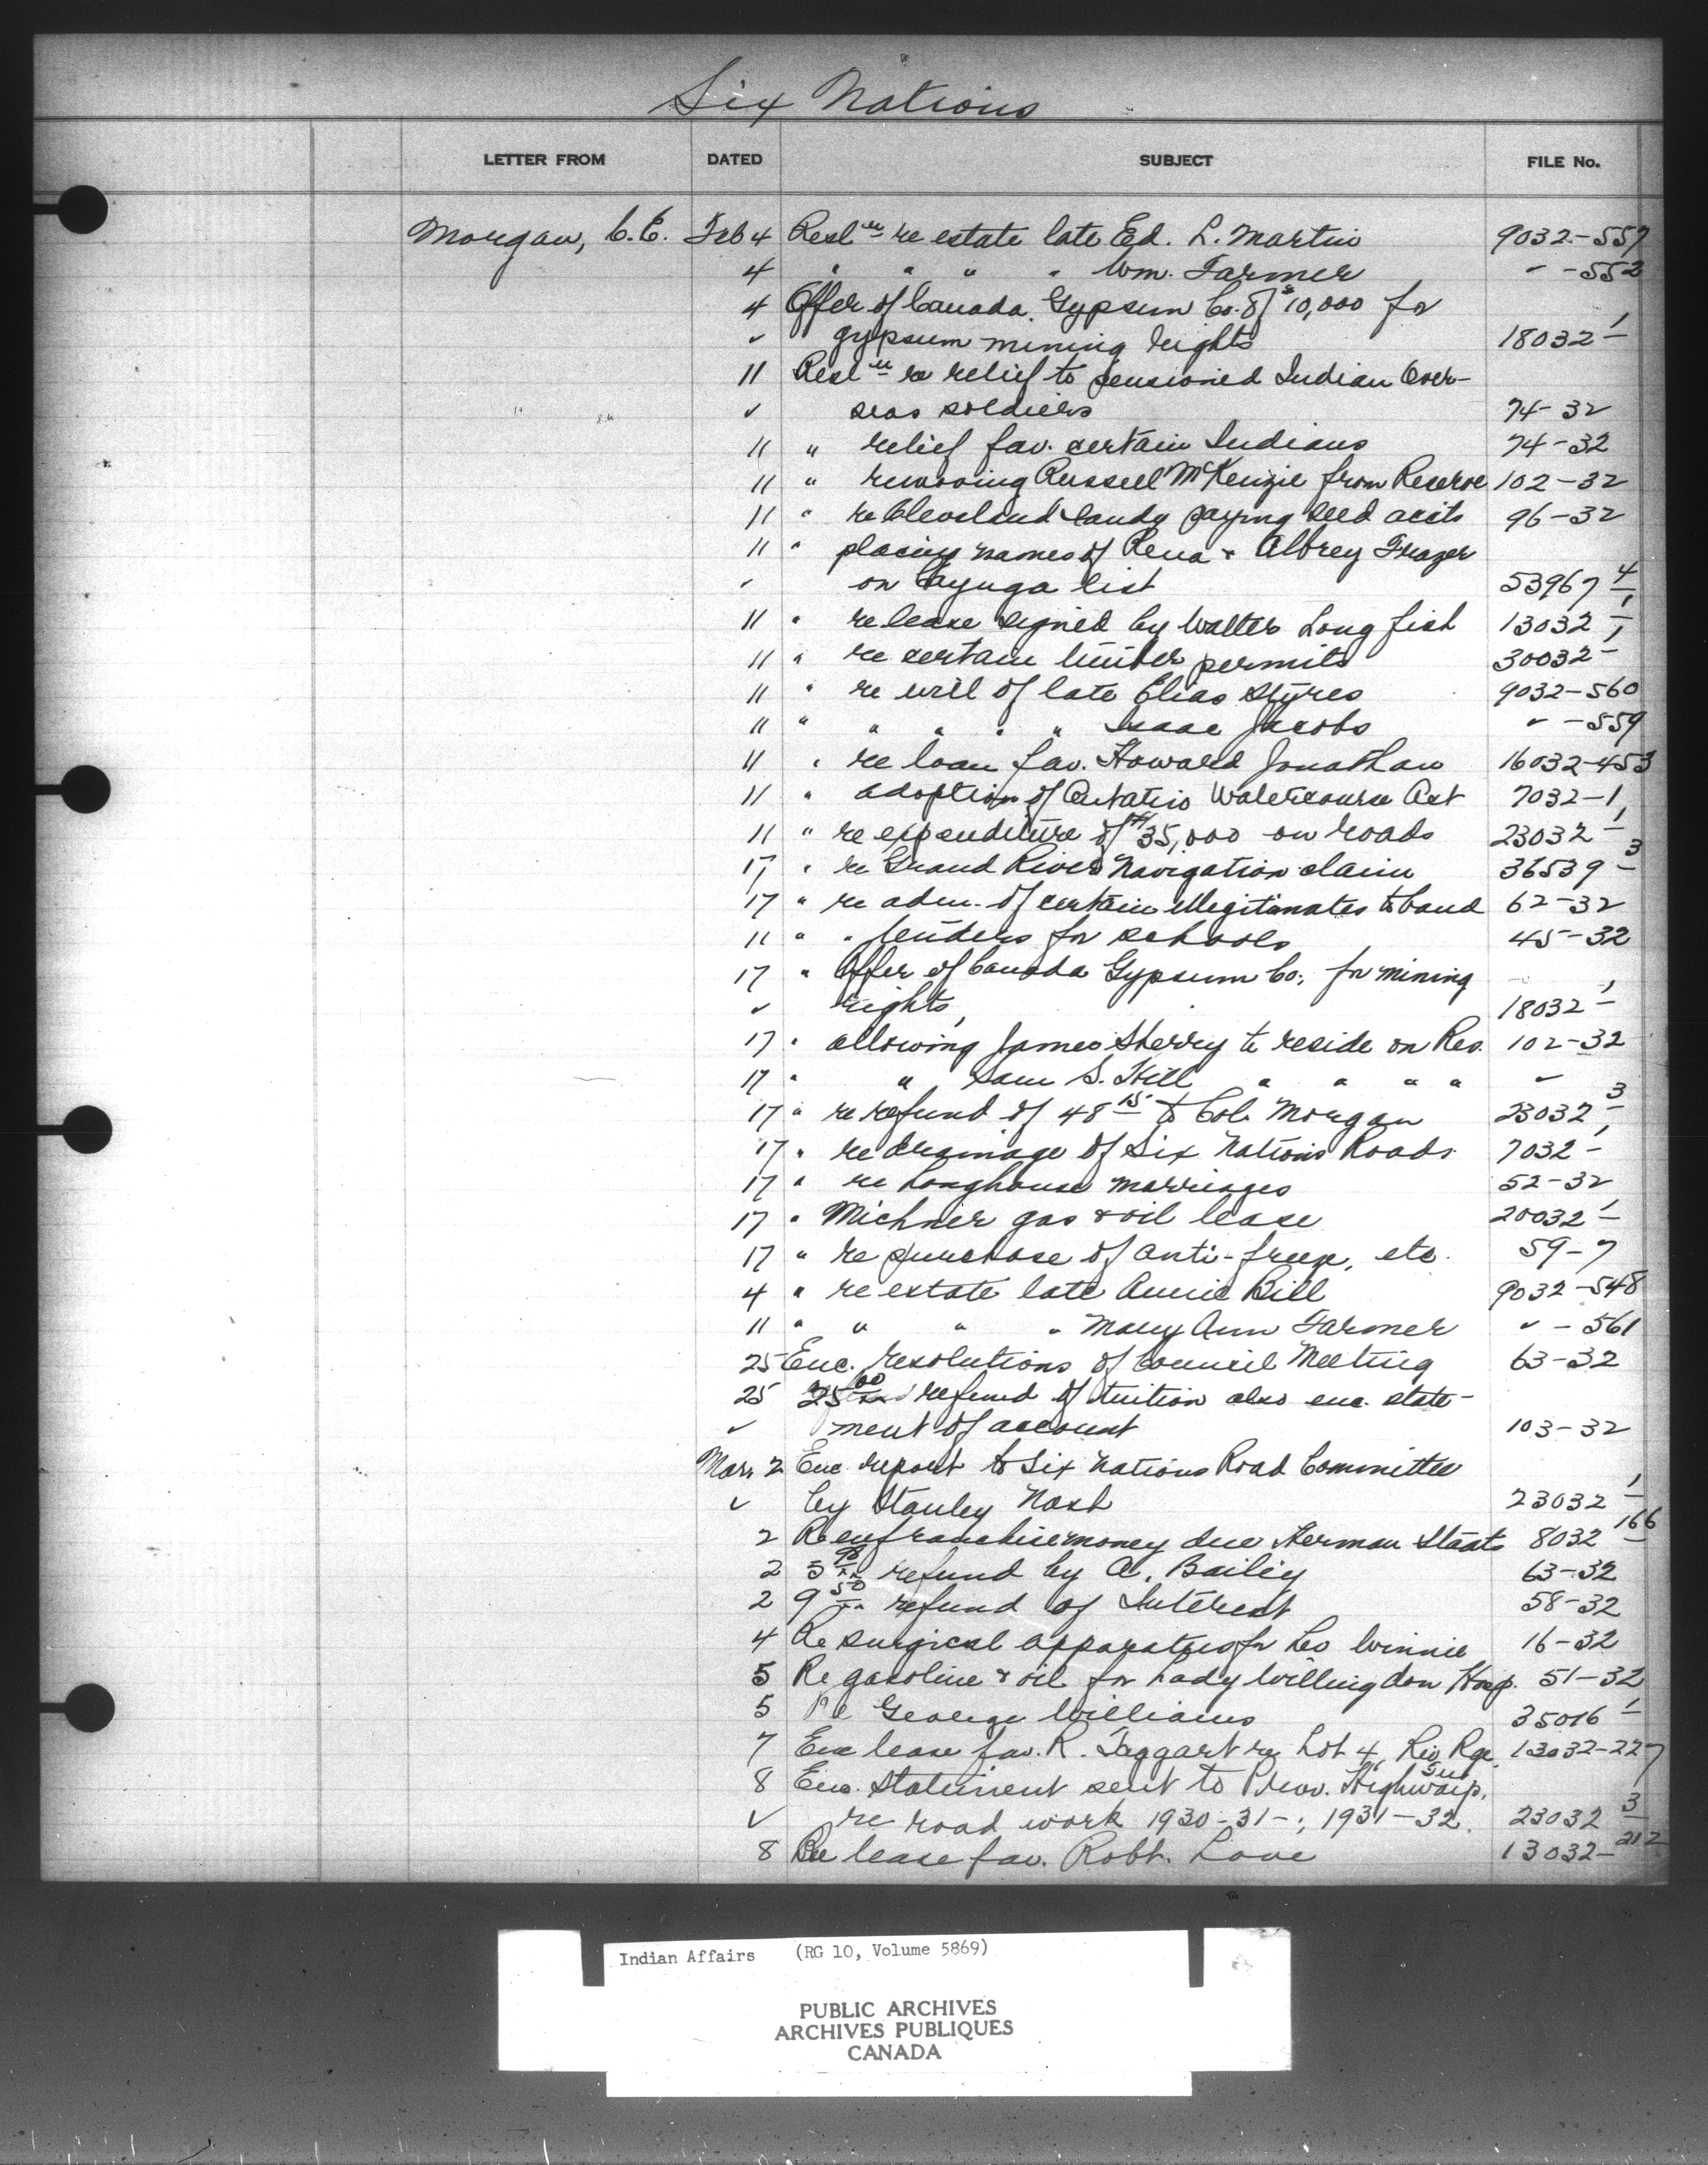 Six Nations
LETTER FROM DATED SUBJECT FILE No.
Morgan, C.E. Feb 4 Resl'n re estate late Ed. L. Martin 9032-557
4 " " " " Wm. Farmer ✓ -552
4 Offer of Canada Gypsum Co. of $10,000 for
✓ gypsum mining rights 18032-1
11 Resl'n re relief to pensioned Indian Over-
✓ seas soldiers 74-32
11 " relief fav. certain Indians 74-32
11 " removing Russell McKenzie from Reserve 102-32
11 " re Cleveland Sandy paying seed accts 96-32
11 " placing names of Rena & Albrey Frazer
✓ on Cayuga list 53967-4
11 " re lease signed by Walter Longfish 13032-1
11 " re certain timber permits 30032-1
11 " re will of late Elias Styres 9032-560
11 " " " " " Isaac Jacobs ✓ -559
11 " re loan fav. Howard Jonathan 16032-453
11 " adoption of Ontario Watercourse Act 7032-1
11 " re expenditure of $35,000 on roads 23032-1
17 " re Grand River Navigation claim 36539-3
17 " re adm. of certain illegitimates to band 62-32
11 " " tenders for schools 45-32
17 " Offer of Canada Gypsum Co. for mining
✓ rights, 18032-1
17 " allowing James Sherry to reside on Res. 102-32
17 " " Sam S. Hill " " " " ✓
17 " re refund of 48 15 to Col. Morgan 23032-3
17 " re drainage of Six Nations Roads 7032-1
17 " re Longhouse marriages 52-32
17 " Michner gas & oil lease 20032-1
17 " re purchase of anti-freeze, etc. 59-7
4 " re estate late Annie Bill 9032-548
11 " " " " Mary Ann Farmer ✓ - 561
25 Enc. resolutions of Council Meeting 63-32
25 25 00/xx refund of tuition also enc. state-
✓ ment of account 103-32
Mar. 2 Enc. report to Six Nations Road Committee
✓ by Stanley Nash 23032-1
2 Re enfranchise money due Herman Staats 8032-166
2 5 xx refund by A. Bailey 63-32
2 9 50/xx refund of Interest 58-32
4 Re surgical apparatus for Leo Winnie 16-32
5 Re gasoline & oil for Lady Willingdon Hosp. 51-32
5 Re George Williams 35016-1
7 Enc lease fav. R. Taggart re Lot 4, Riv. Rge. 13032-227
8 Enc. Statement sent to Prov. Highways,
✓ re road work 1930-31-; 1931-32. 23032-3
8 Re lease fav. Robt. Love 13032-212
Indian Affairs (RG 10, Volume 5869)
PUBLIC ARCHIVES
ARCHIVES PUBLIQUES
CANADA